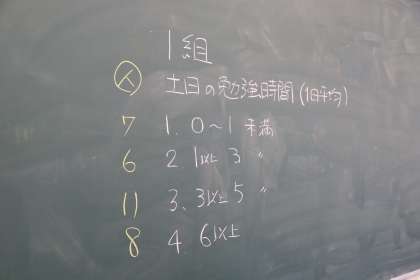 1組
人 土日の勉強時間(1日平均)
7 1. 0〜1 未満
6 2. 1以上 3 〃
11 3. 3以上 5 〃
8 4. 6以上